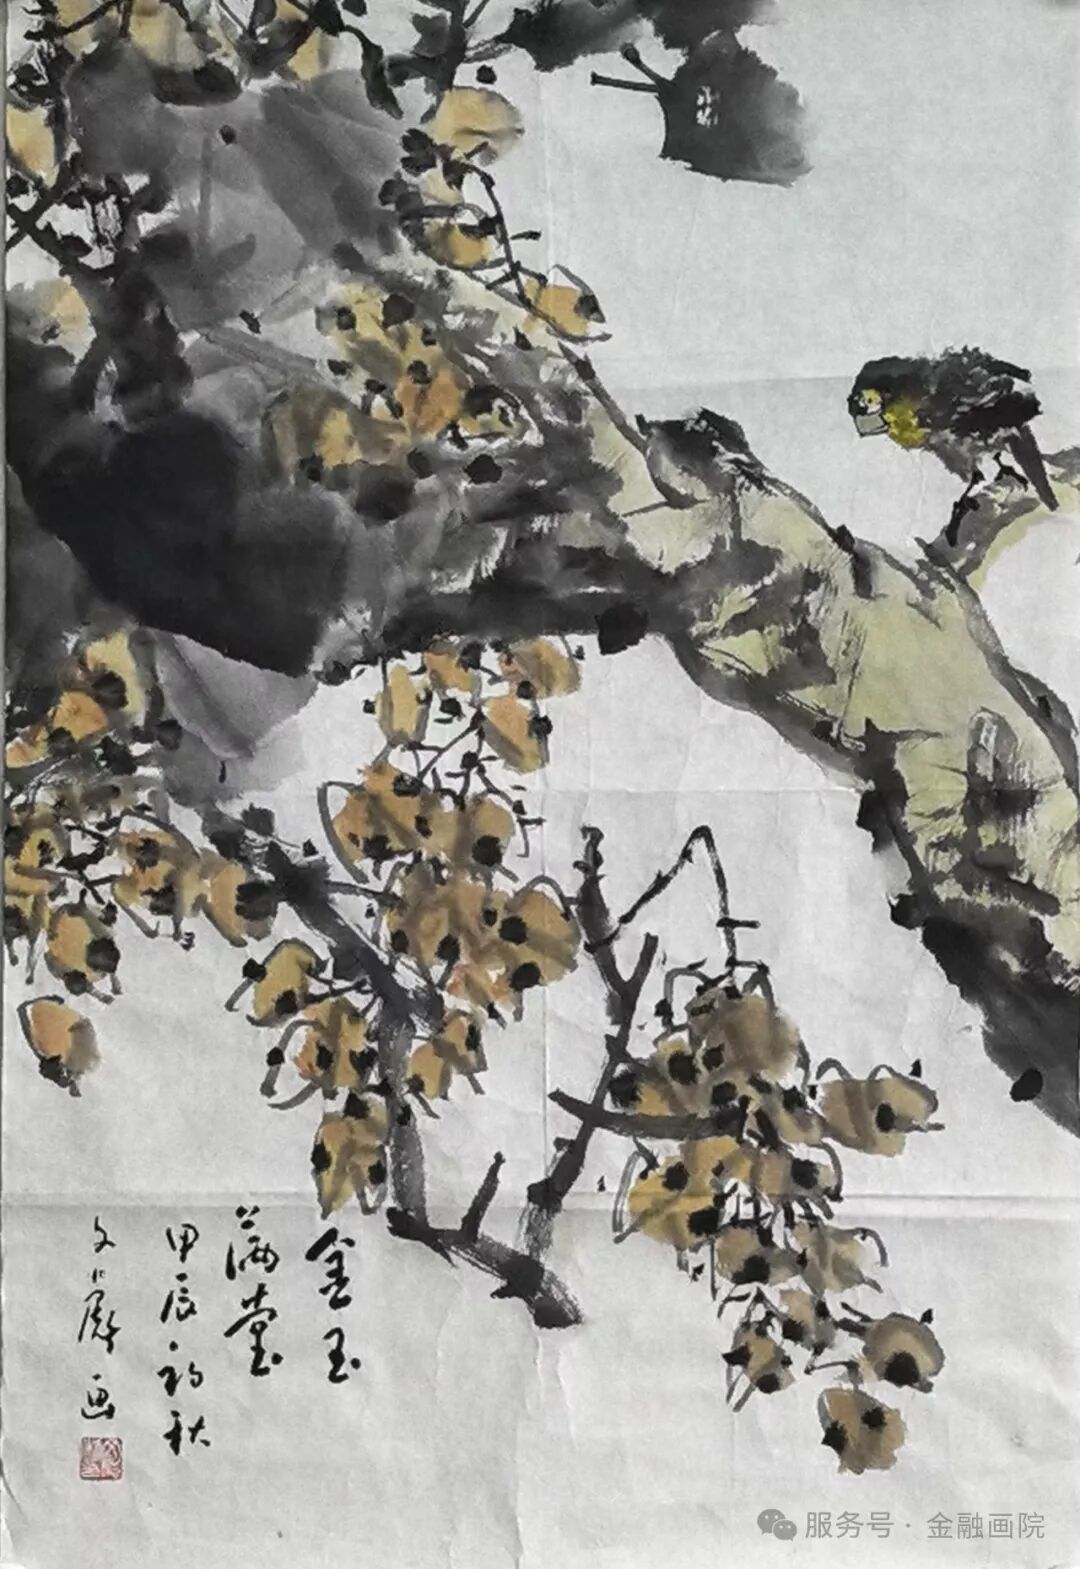 金玉
满堂
甲辰初秋
文
画
服务号 · 金融画院